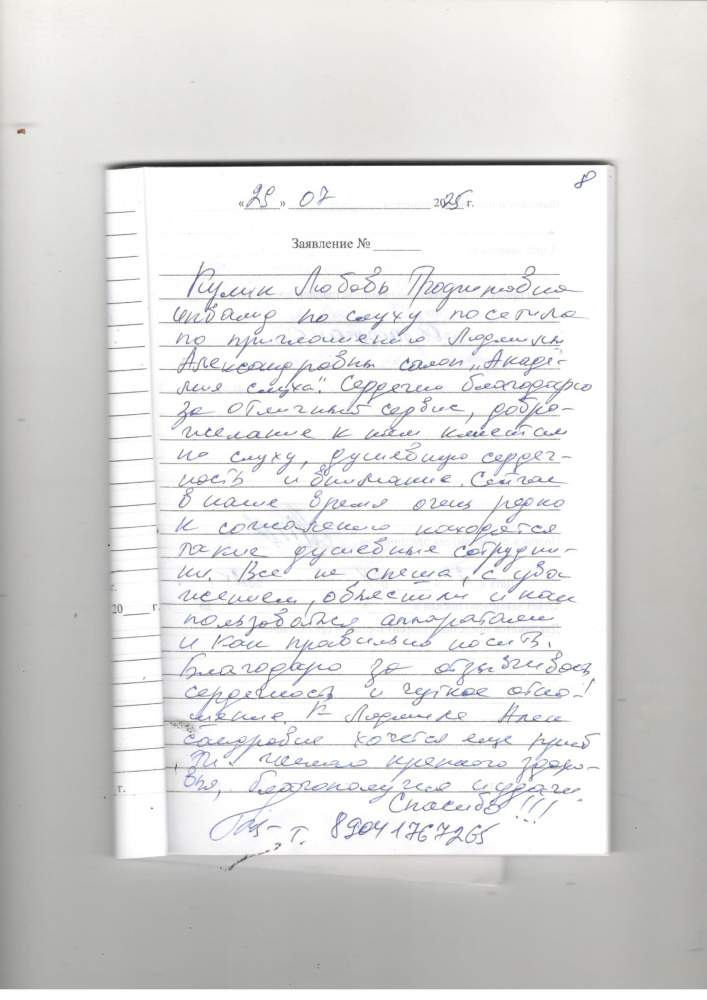 8
«29» 07 2025 г.
Заявление №
Кулик Любовь
инвалид по слуху посетила
по приглашению Людмилы
Александровны салон „Акаде-
мия слуха". Сердечно благодарю
за отличный сервис, добро-
желание к нам клиентам
по слуху, душевную сердеч-
ность и внимание. Сейчас
в наше время очень редко
к сожалению находятся
такие душевные сотрудни-
ки. Все не спеша, с ува-
жением, объяснили и как
пользоваться аппаратами
и как правильно носить.
Благодарю за отзывчивость
сердечность и чуткое отно-!
шение. К Людмиле Алек
сандровне хочется еще
желаю крепкого здоро-
вья, благополучия и удачи.
Спасибо!!!
т. 89041767265
20 г.
г.